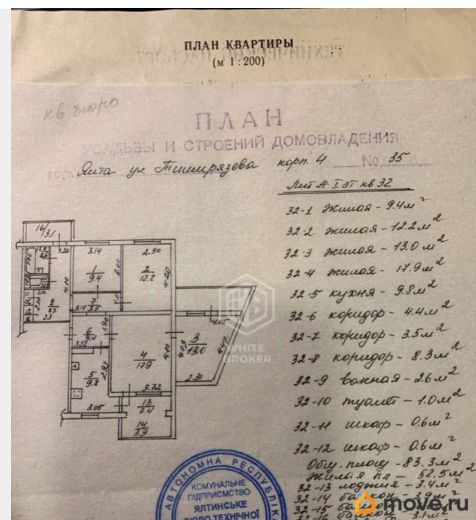 ПЛАН КВАРТИРЫ
(м 1:200)
ПЛАН
УСАДЬБЫ И СТРОЕНИЙ ДОМОВЛАДЕНИЯ
Ялта ул. Тимирязева корп. 4 № 35
Лит А I эт кв 32
32-1 жилая - 9.4 м²
32-2 жилая - 12.2 м²
32-3 жилая - 13.0 м²
32-4 жилая - 17.9 м²
32-5 кухня - 9.8 м²
32-6 коридор - 4.4 м²
32-7 коридор - 3.5 м²
32-8 коридор - 8.3 м²
32-9 ванная - 2.6 м²
32-10 туалет - 1.0 м²
32-11 шкаф - 0.6 м²
32-12 шкаф - 0.6 м²
Общ. площ - 83.3 м²
Жилая пл - 52.5 м²
32-13 лоджия - 3.4 м²
32-14
32-15
16
3.1
3.14
2.90
1
9.4
2
12.2
7
6
4
17.9
3
13.0
5
9.8
3.05
3.72
13
14
3.9
WHITE
BROKER
АВТОНОМНА РЕСПУБЛІК
КОМУНАЛЬНЕ
ПІДПРИЄМСТВО
ЯЛТИНСЬКЕ
БЮРО ТЕХНІЧНОЇ
move.ru